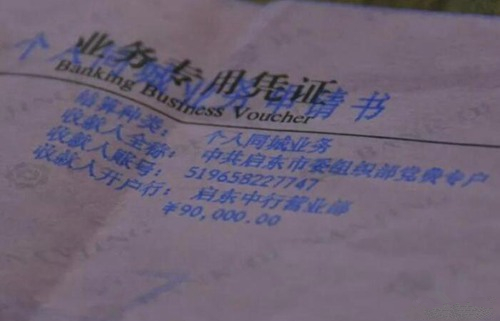 业务专用凭证
个人同城业务申请书
Banking Business Voucher
结算种类： 个人同城业务
收款人全称： 中共启东市委组织部党费专户
收款人账号： 519658227747
收款人开户行： 启东中行营业部
￥90,000.00